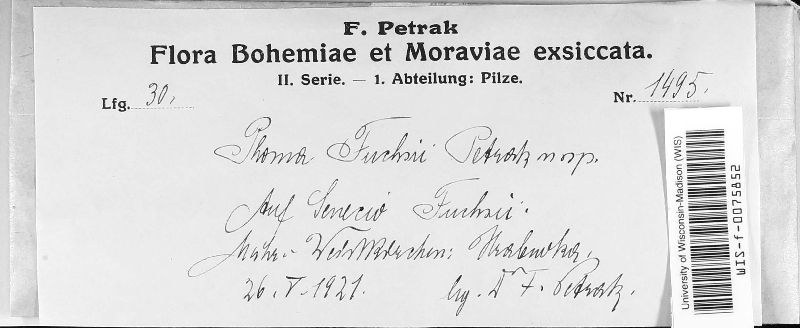 F. Petrak
Flora Bohemiae et Moraviae exsiccata.
II. Serie. — 1. Abteilung: Pilze.
Lfg. 30.
Nr. 1495.
Phoma Fuchsii Petrak n. sp.
Auf Senecio Fuchsii.
Mähr.-Weisskirchen: Hrabuvka,
26. V. 1921. lg. Dr F. Petrak.
University of Wisconsin-Madison (WIS)
WIS-f-0075852